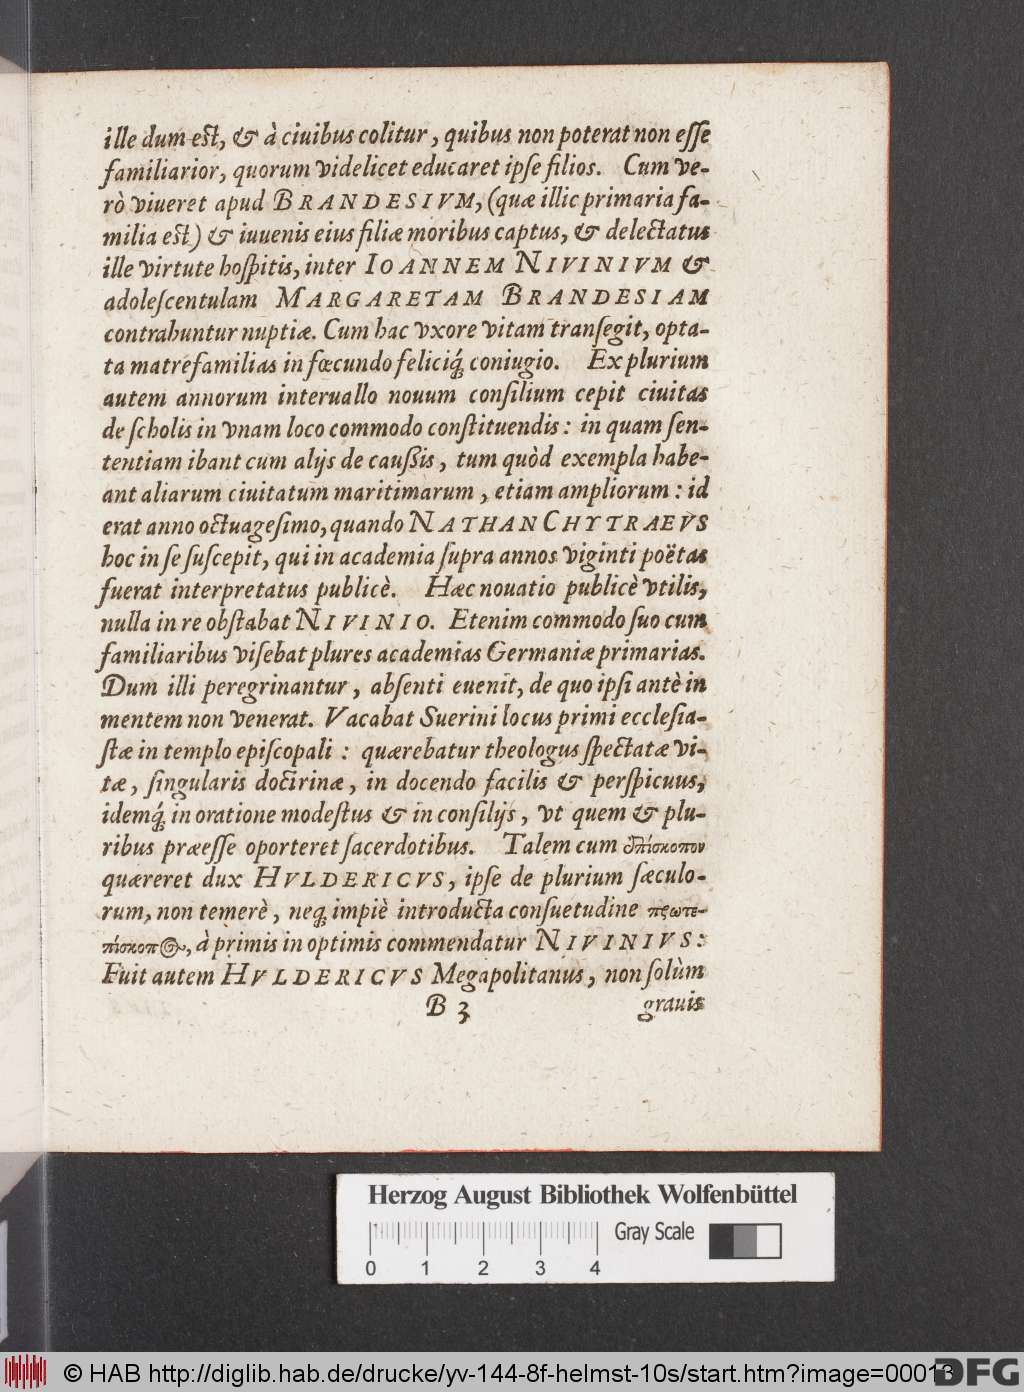 ille dum est, & à ciuibus colitur, quibus non poterat non esse
familiarior, quorum videlicet educaret ipse filios. Cum ve-
rò viueret apud BRANDESIVM, (quæ illic primaria fa-
milia est) & iuuenis eius filiæ moribus captus, & delectatus
ille virtute hospitis, inter IOANNEM NIVINIVM &
adolescentulam MARGARETAM BRANDESIAM
contrahuntur nuptiæ. Cum hac vxore vitam transegit, opta-
ta matrefamilias in fœcundo feliciq́; coniugio. Ex plurium
autem annorum interuallo nouum consilium cepit ciuitas
de scholis in vnam loco commodo constituendis: in quam sen-
tentiam ibant cum alijs de caussis, tum quòd exempla habe-
ant aliarum ciuitatum maritimarum, etiam ampliorum: id
erat anno octuagesimo, quando NATHAN CHYTRAEVS
hoc in se suscepit, qui in academia supra annos viginti poëtas
fuerat interpretatus publicè. Hæc nouatio publicè vtilis,
nulla in re obstabat NIVINIO. Etenim commodo suo cum
familiaribus visebat plures academias Germaniæ primarias.
Dum illi peregrinantur, absenti euenit, de quo ipsi antè in
mentem non venerat. Vacabat Suerini locus primi ecclesia-
stæ in templo episcopali: quærebatur theologus spectatæ vi-
tæ, singularis doctrinæ, in docendo facilis & perspicuus,
idemq́; in oratione modestus & in consilijs, vt quem & plu-
ribus præesse oporteret sacerdotibus. Talem cum ἐπίσκοπον
quæreret dux HVLDERICVS, ipse de plurium sæculo-
rum, non temerè, neq; impiè introducta consuetudine πρωτε-
πίσκοπος, à primis in optimis commendatur NIVINIVS:
Fuit autem HVLDERICVS Megapolitanus, non solùm
B 3 grauis
Herzog August Bibliothek Wolfenbüttel
Gray Scale
0 1 2 3 4
© HAB http://diglib.hab.de/drucke/yv-144-8f-helmst-10s/start.htm?image=00013
DFG